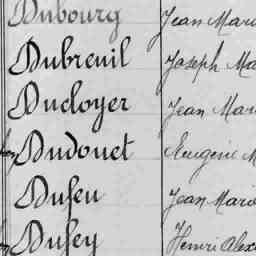 Dubourg Jean Mari
Dubreuil Joseph Ma
Ducloyer Jean Mari
Dudouet Eugène M
Dufeu Jean Marie
Dufey Henri Alex